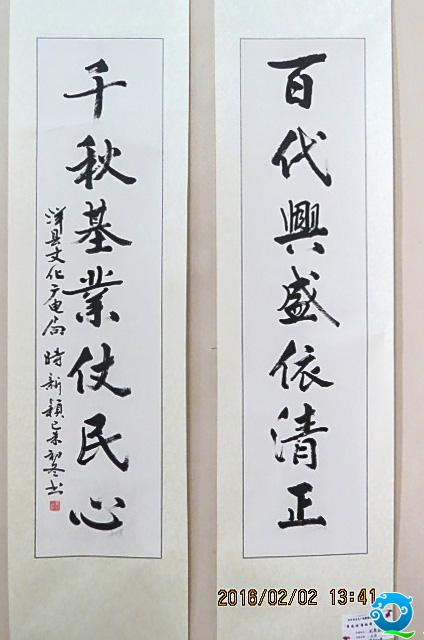 百代興盛依清正
千秋基業仗民心
洋县文化广电局 時新穎 乙未初冬书
2016/02/02 13:41